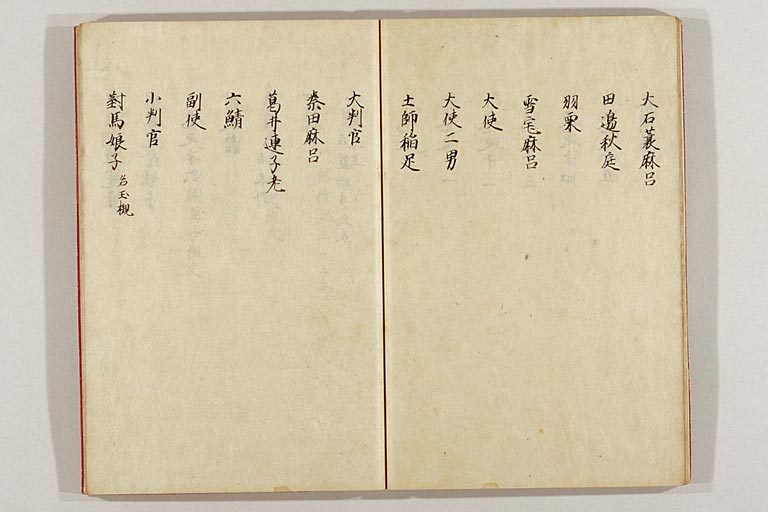 大石蓑麻呂
田邉秋庭
羽栗
雪宅麻呂
大使
大使二男
土師稲足
大判官
秦田麻呂
葛井連子老
六鯖
副使
小判官
對馬娘子 名玉槻